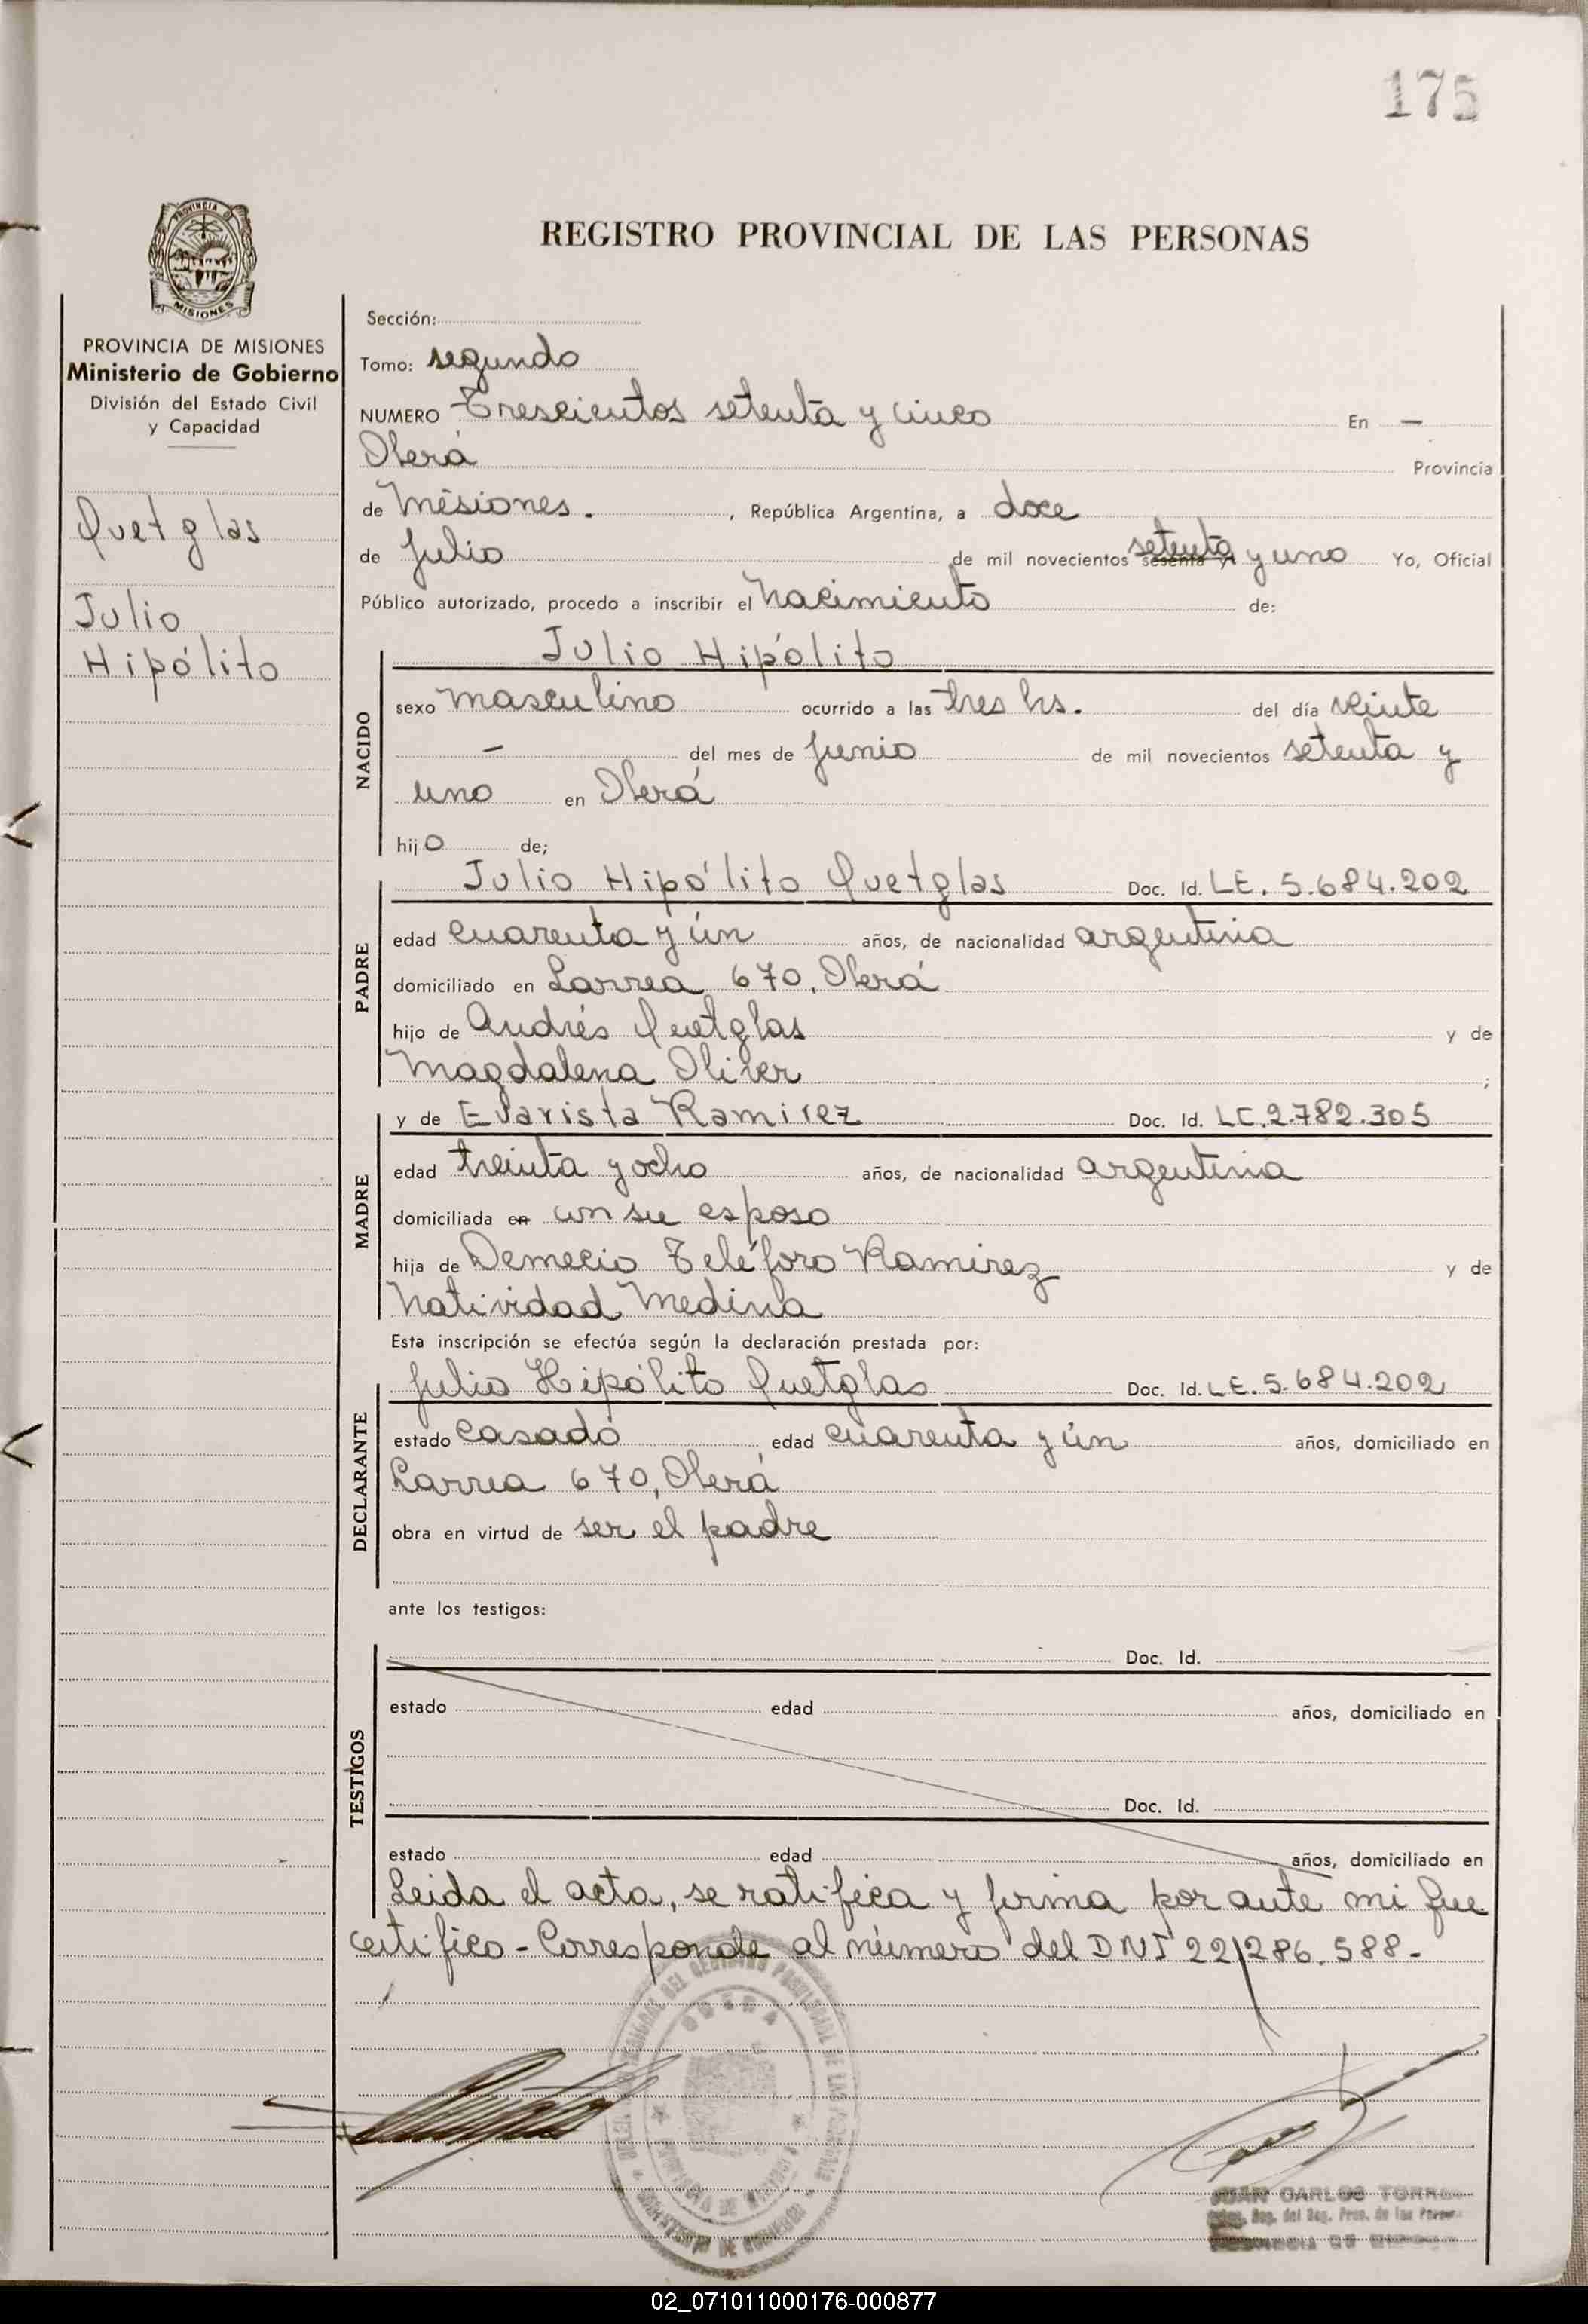 175
PROVINCIA DE
MISIONES
REGISTRO PROVINCIAL DE LAS PERSONAS
PROVINCIA DE MISIONES
Ministerio de Gobierno
División del Estado Civil
y Capacidad
Quetglas
Julio
Hipólito
Sección:
Tomo: segundo
NUMERO Trescientos setenta y cinco En —
Oberá Provincia
de Misiones. , República Argentina, a doce
de Julio de mil novecientos sesenta y setenta y uno Yo, Oficial
Público autorizado, procedo a inscribir el nacimiento de:
NACIDO
Julio Hipólito
sexo masculino ocurrido a las tres hs. del día veinte
— del mes de Junio de mil novecientos setenta y
uno en Oberá
hijo de;
PADRE
Julio Hipólito Quetglas Doc. Id. LE. 5.684.202
edad cuarenta y ún años, de nacionalidad argentina
domiciliado en Larrea 670, Oberá
hijo de Andrés Quetglas y de
Magdalena Oliver ;
MADRE
y de Evarista Ramirez Doc. Id. LC.2.782.305
edad treinta y ocho años, de nacionalidad argentina
domiciliada en con su esposo
hija de Demecio Teléforo Ramirez y de
Natividad Medina
Esta inscripción se efectúa según la declaración prestada por:
DECLARANTE
Julio Hipólito Quetglas Doc. Id. LE. 5.684.202
estado casado edad cuarenta y ún años, domiciliado en
Larrea 670, Oberá
obra en virtud de ser el padre
ante los testigos:
TESTIGOS
Doc. Id.
estado edad años, domiciliado en
Doc. Id.
estado edad años, domiciliado en
Leida el acta, se ratifica y firma por ante mi que
certifico - Corresponde al número del DNI 22.286.588-
OBERA
JUAN CARLOS TORRES
02_071011000176-000877